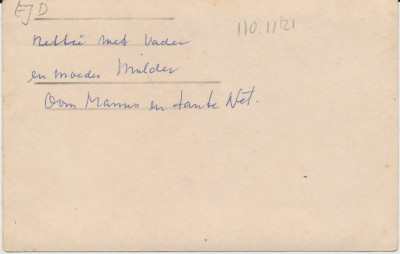 EJD
110.1121
Nettie met Vader
en moeder Mulder
Oom Manus en tante Net.